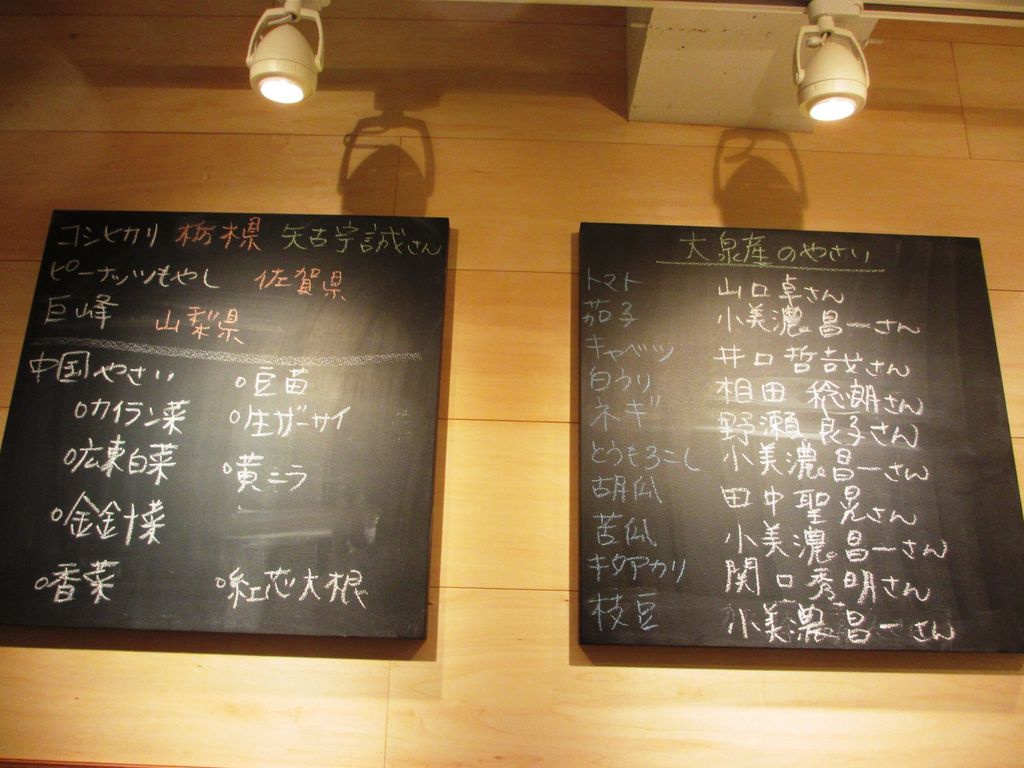 コシヒカリ 栃木県 矢古宇誠さん
ピーナッツもやし 佐賀県
巨峰 山梨県
中国やさい
○豆苗
○カイラン菜
○生ザーサイ
○広東白菜
○黄ニラ
○金針菜
○香菜
○紅芯大根
大泉産のやさい
トマト 山口卓さん
茄子 小美濃昌一さん
キャベツ 井口哲哉さん
白ウリ 相田稔朗さん
ネギ 野瀬良子さん
とうもろこし 小美濃昌一さん
胡瓜 田中聖晃さん
苦瓜 小美濃昌一さん
キタアカリ 関口秀明さん
枝豆 小美濃昌一さん